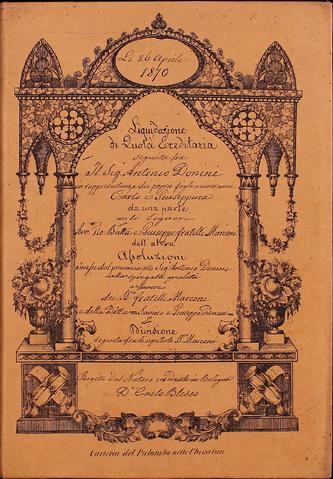 Li 26 Aprile
1870
Liquidazione
di Quota Ereditaria
seguita fra
Il Sig. Antonio Donini
in rappresentanza dei propri figli minorenni
Carlo e Giuseppina
da una parte
e lo Signori
Avv. Gio. Batta e Giuseppe fratelli Marconi
dell'altra
Assoluzioni
emesse dal prenominato Sig. Antonio Donini
nella spiegata qualità
a favore
dei Sig. fratelli Marconi
e della Ditta Giuseppe Donini
E
Divisione
seguita fra li ripetuti S. Marconi
Rogito del Notaro residente in Bologna
D. Carlo
Carteria del Palumbo nelle Chiavature